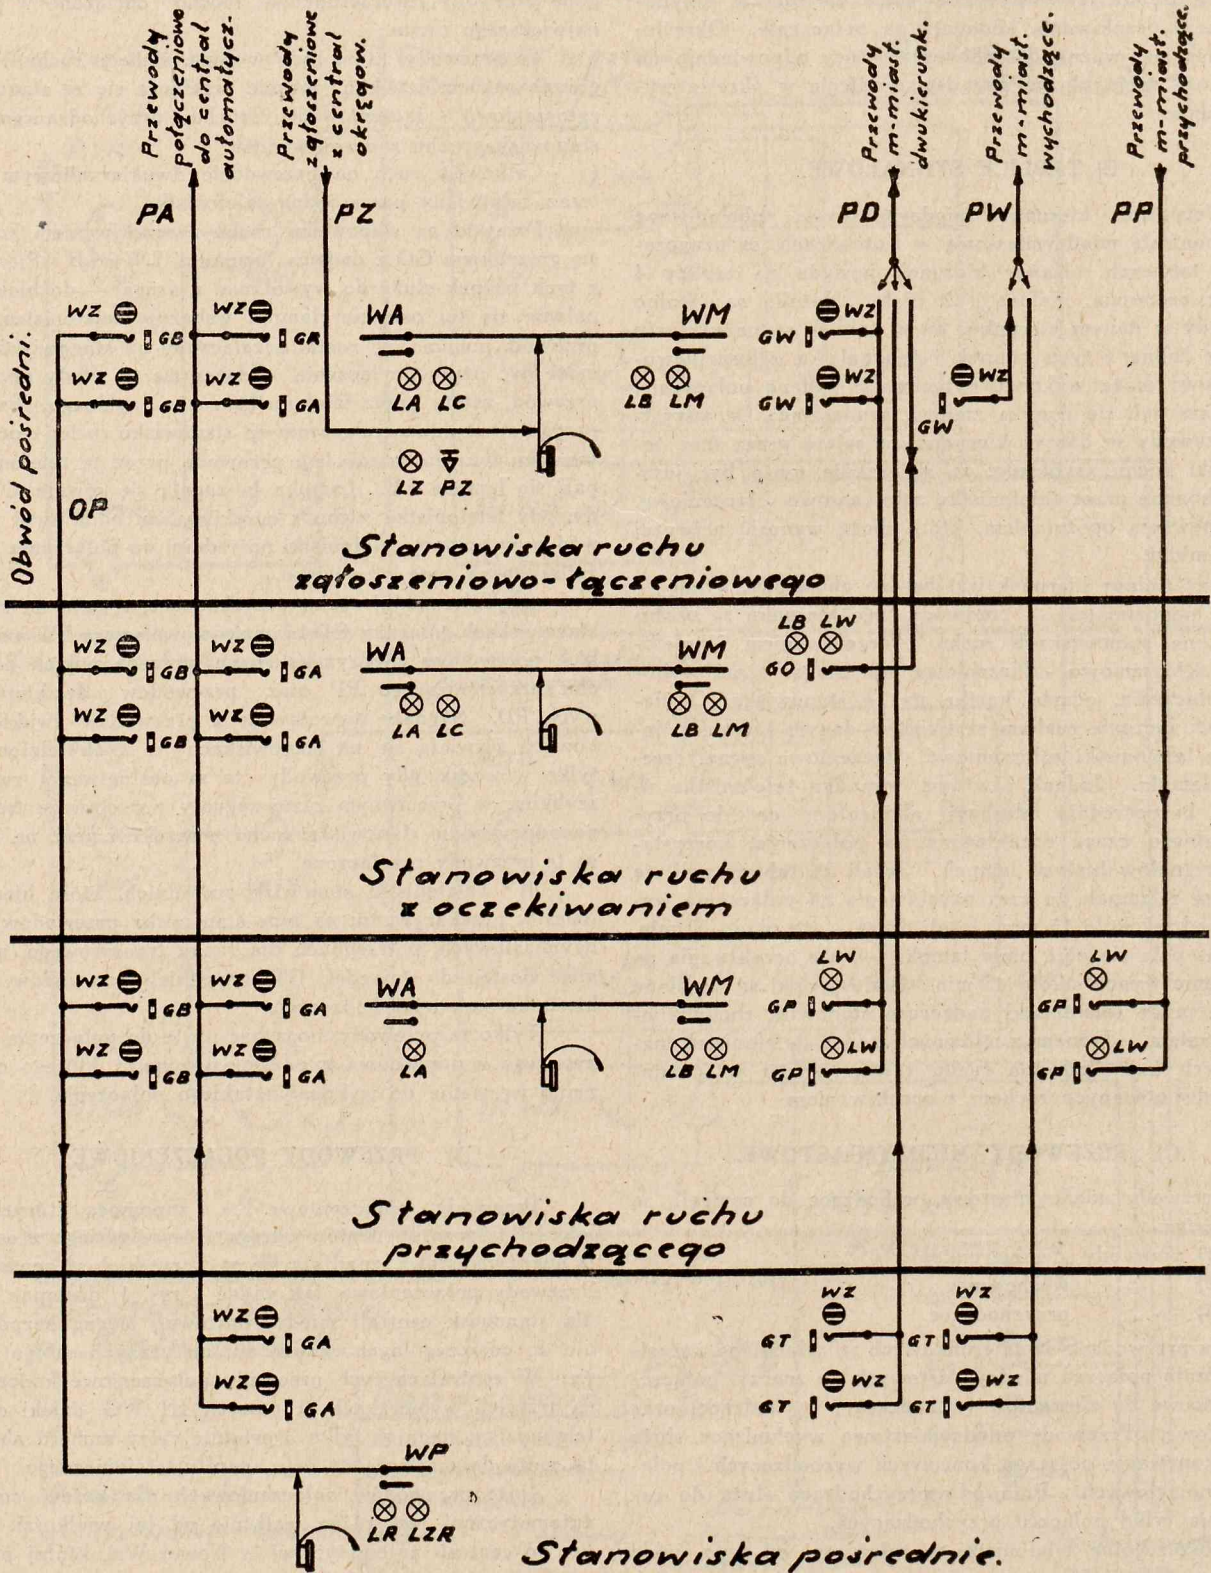 Przewody
połączeniowe
do central
automatycz.
Przewody
zgłoszeniowe
z central
okręgow.
Przewody
m-miast.
dwukierunk.
Przewody
m-miast.
wychodzące.
Przewody
m-miast.
przychodzące.
PA
PZ
PD
PW
PP
Obwód pośredni.
OP
WZ
GB
WZ
GR
WA
WM
WZ
GW
WZ
GB
WZ
GA
LA LC
LB LM
WZ
GW
WZ
GW
LZ PZ
Stanowiska ruchu
zgłoszeniowo-łączeniowego
WZ
GB
WZ
GA
WA
WM
LB LW
GO
WZ
GB
WZ
GA
LA LC
LB LM
Stanowiska ruchu
z oczekiwaniem
WZ
GB
WZ
GA
WA
WM
LW
GP
LW
GP
WZ
GB
WZ
GA
LA
LB LM
LW
GP
LW
GP
Stanowiska ruchu
przychodzącego
WZ
GA
WZ
GT
WZ
GT
WZ
GA
WZ
GT
WZ
GT
WP
LR LZR
Stanowiska pośrednie.